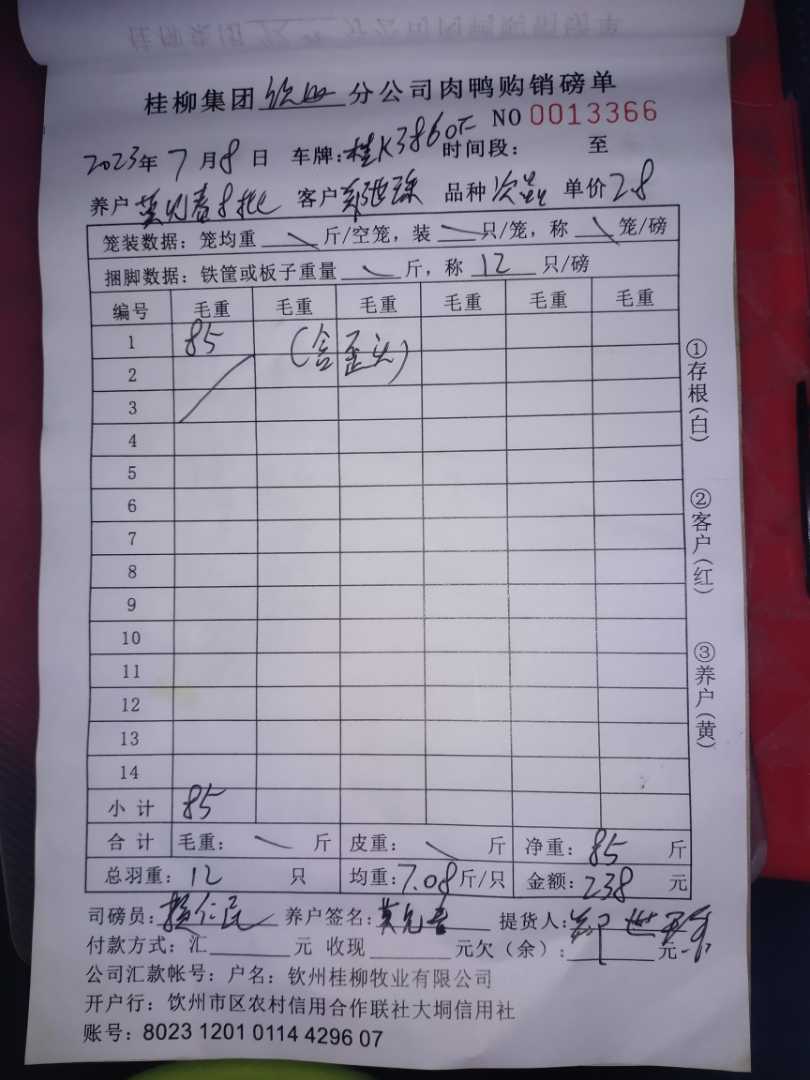 桂柳集团 钦州 分公司肉鸭购销磅单
NO 0013366
2023年7月8日 车牌:桂K3860F 时间段: 至
养户 莫 春8批 客户 郑世 品种 次品 单价 2.8
笼装数据:笼均重 斤/空笼,装 只/笼,称 笼/磅
捆脚数据:铁筐或板子重量 斤,称 12 只/磅
编号 毛重 毛重 毛重 毛重 毛重 毛重
1 85 (含歪头)
2
3
4
5
6
7
8
9
10
11
12
13
14
小计 85
合计 毛重: 斤 皮重: 斤 净重:85 斤
总羽重:12 只 均重:7.08斤/只 金额:238 元
司磅员: 仁民 养户签名:莫 春 提货人:郑世
付款方式:汇 元 收现 元欠(余): 元
公司汇款帐号:户名:钦州桂柳牧业有限公司
开户行:饮州市区农村信用合作联社大垌信用社
账号:8023 1201 0114 4296 07
①存根(白)
②客户(红)
③养户(黄)